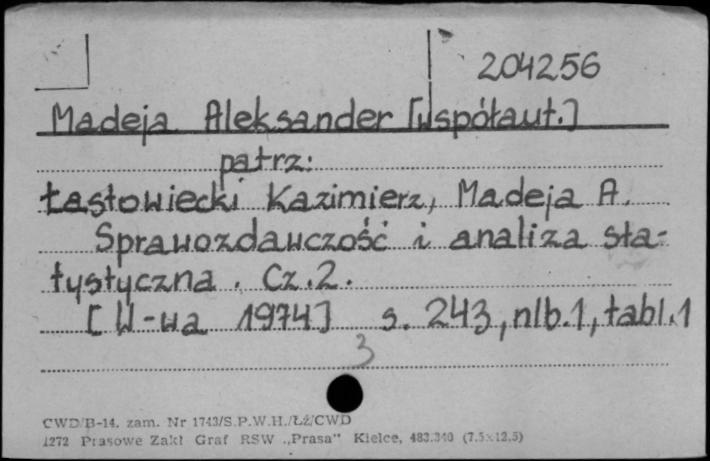 204256
Madeja Aleksander [współaut.]
patrz:
Łastowiecki Kazimierz, Madeja A.
Sprawozdawczość i analiza sta-
tystyczna. Cz. 2.
[W-wa 1974] s. 243, nlb. 1, tabl. 1
3
CWD/B-14. zam. Nr 1743/S.P.W.H./ŁŻ/CWD
1272 Prasowe Zakł Graf RSW „Prasa" Kielce, 483.340 (7.5x12.5)